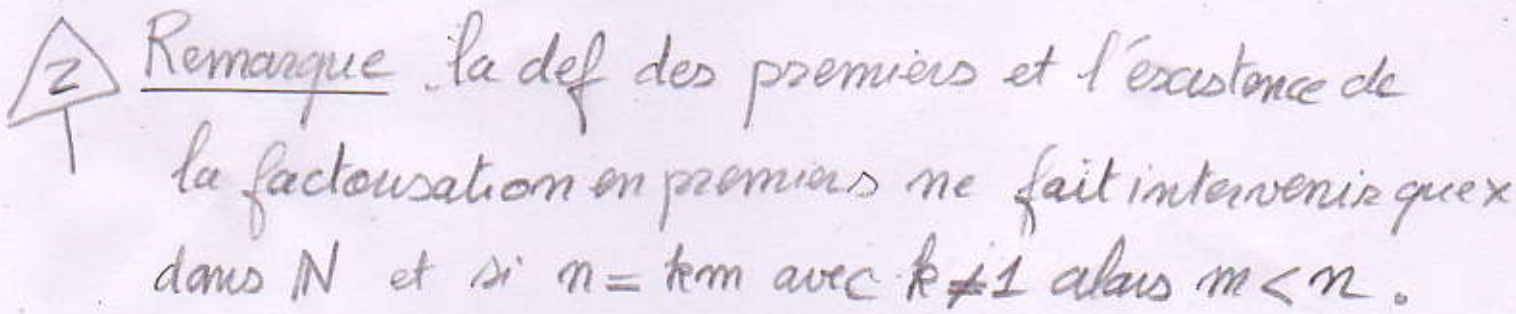 2 Remarque la def des premiers et l'existence de
la factorisation en premiers ne fait intervenir que ×
dans ℕ et si n = km avec k≠1 alors m < n.